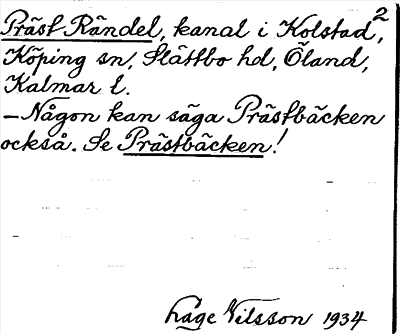 Präst Rändel, kanal i Kolstad,²
Köping sn, Slättbo hd, Öland,
Kalmar l.
–Någon kan säga Prästbäcken
också. Se Prästbäcken!
Låge Nilsson 1934